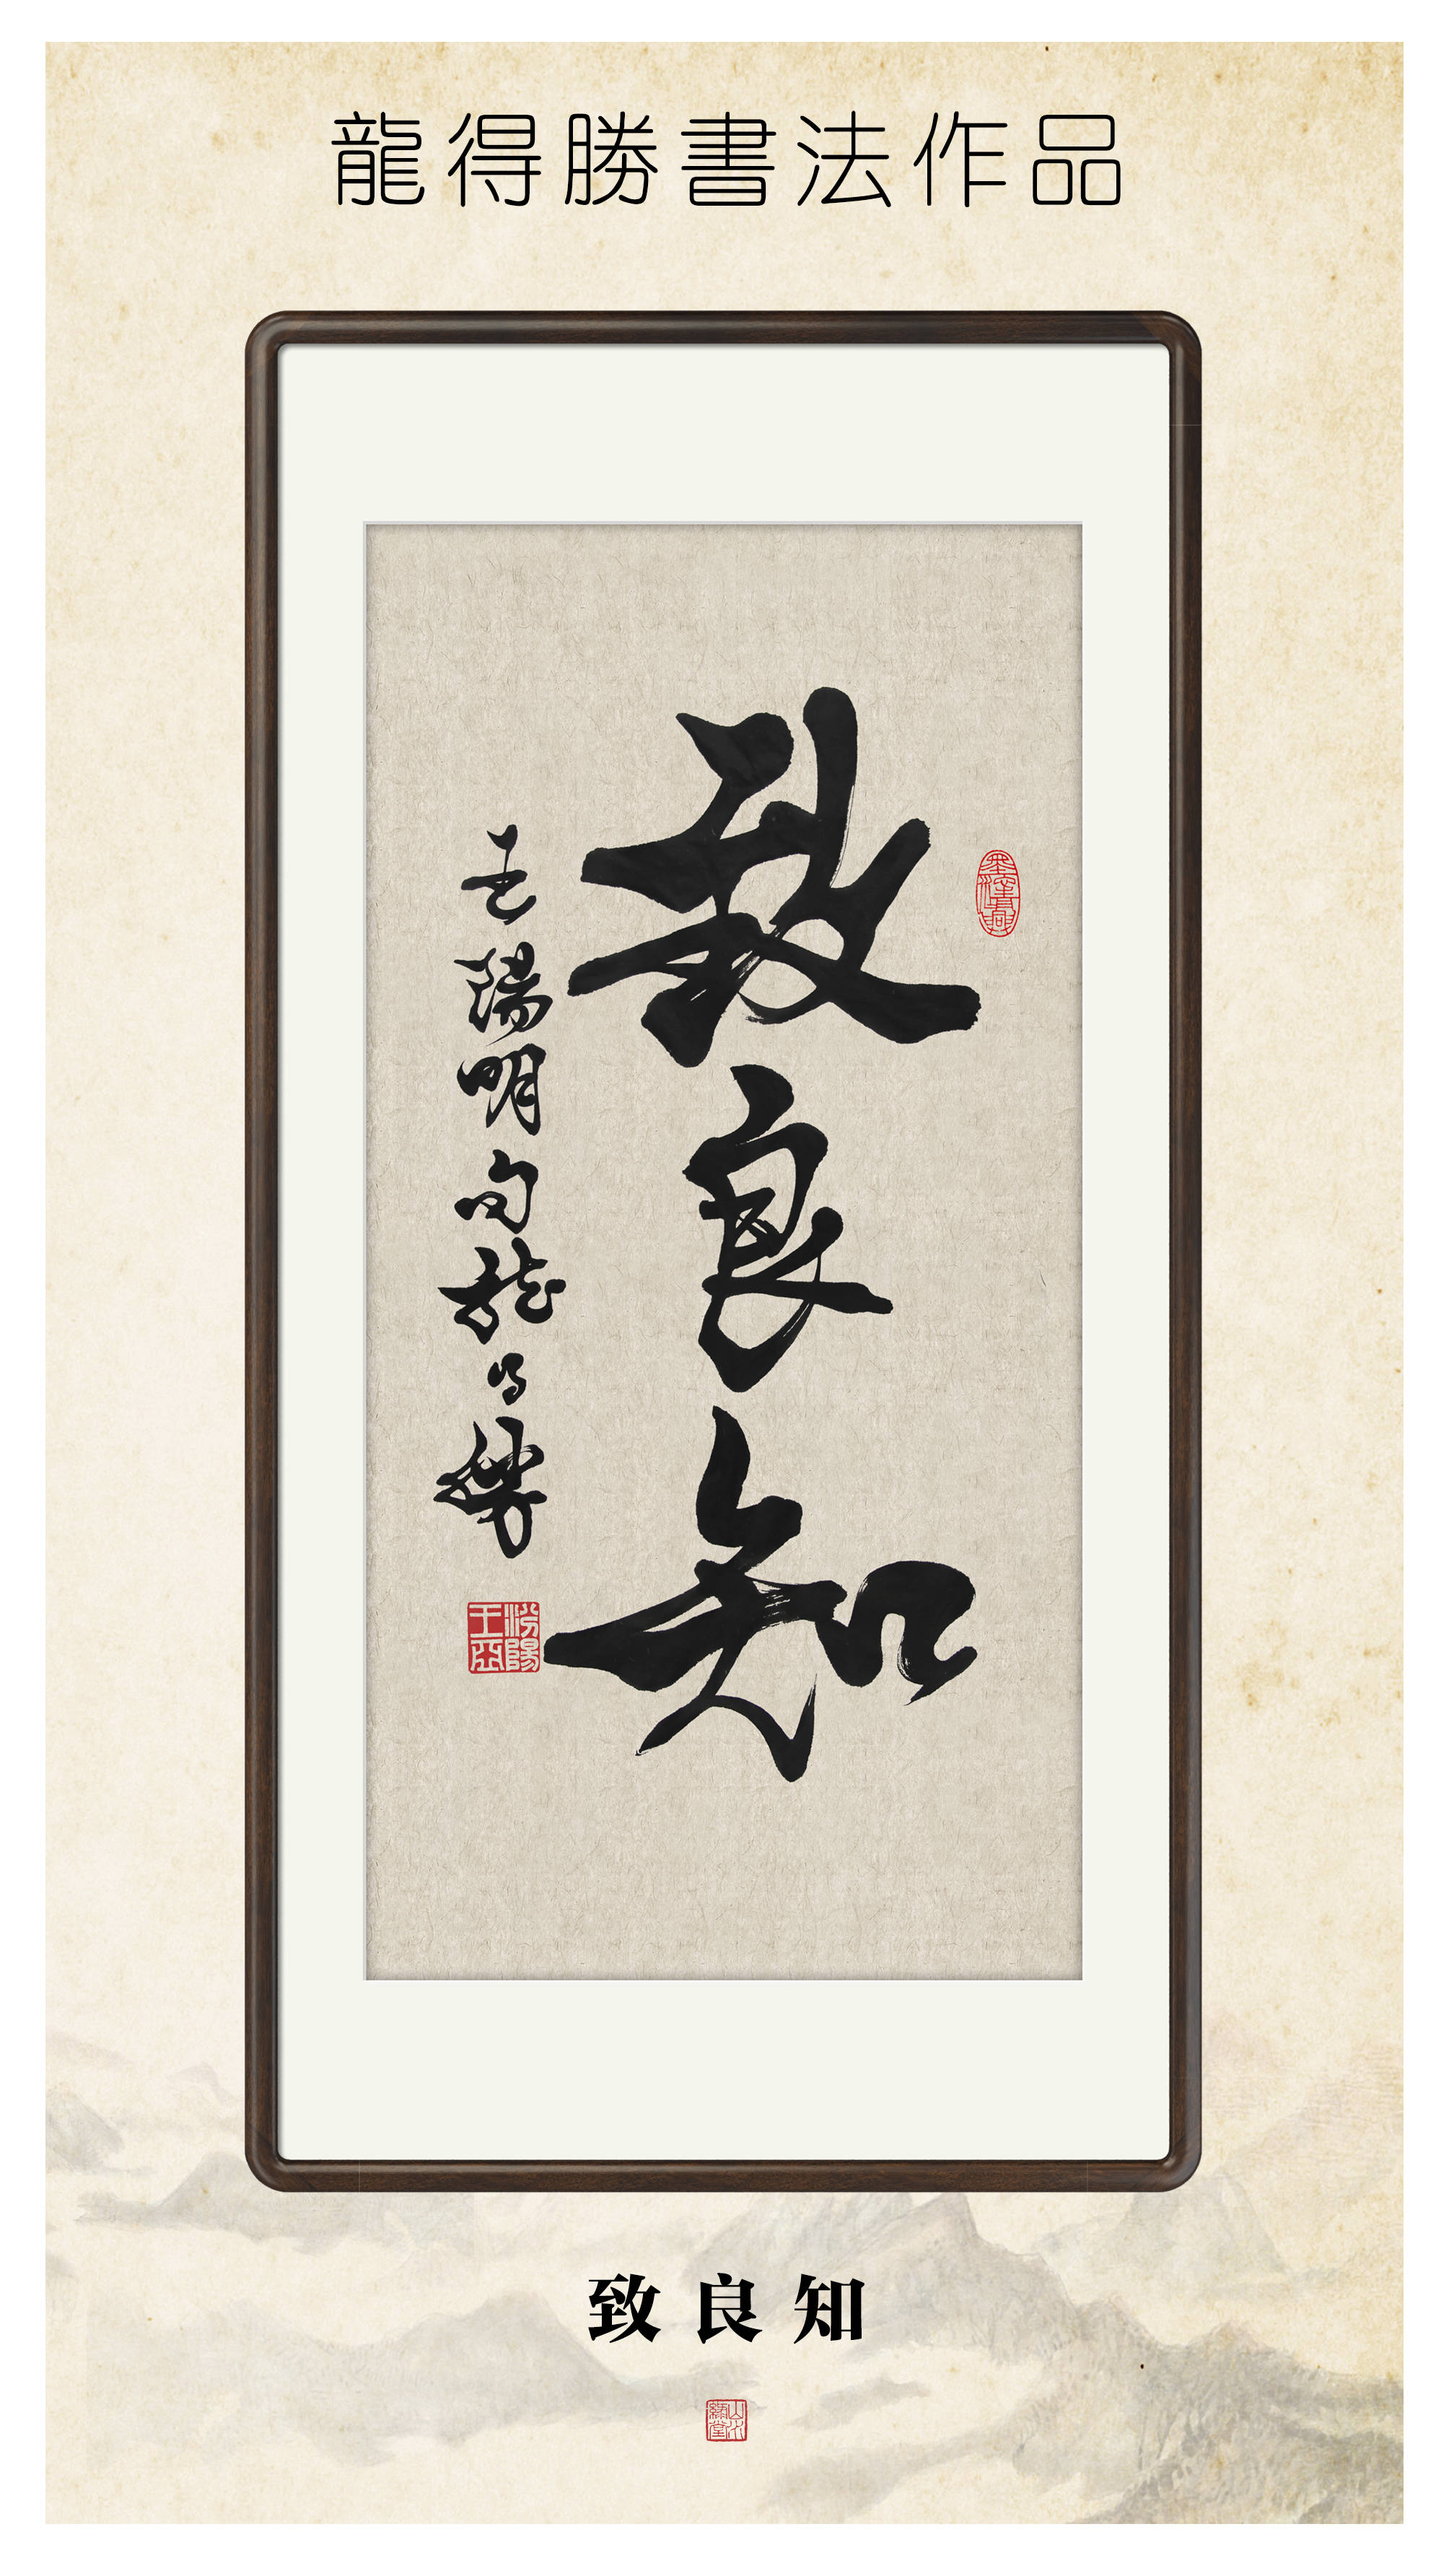 龍得勝書法作品
致良知
王陽明句龍得勝
致良知